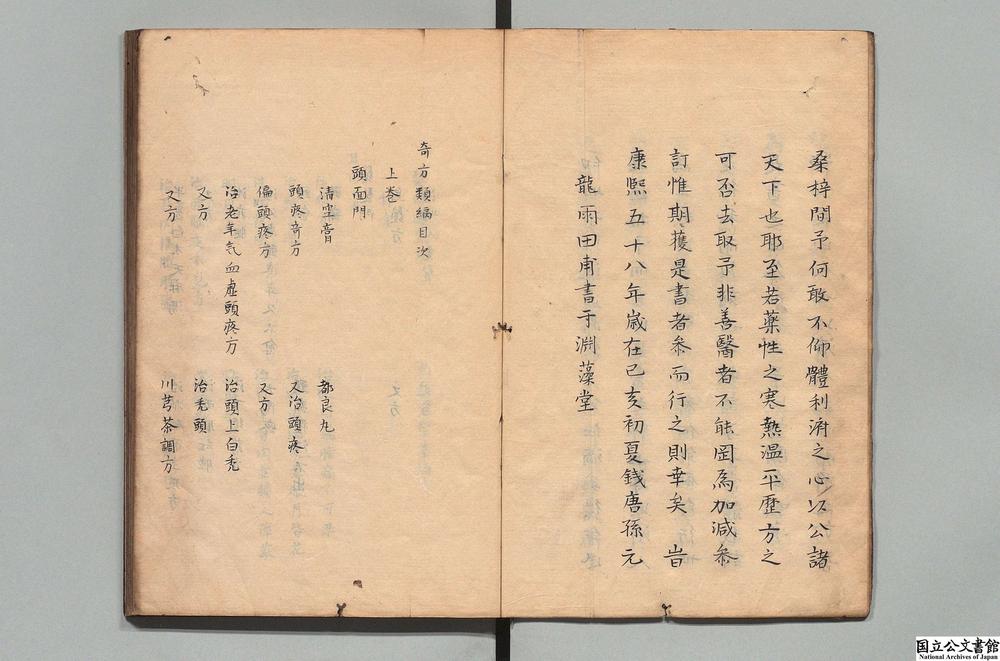 桑梓間予何敢不仰體利濟之心以公諸
天下也耶至若藥性之寒熱温平歷方之
可否去取予非善醫者不能罔爲加減叅
訂惟期獲是書者叅而行之則幸矣 旹
康熈五十八年歲在己亥初夏錢唐孫元
龍雨田甫書于淵藻堂
奇方類編目次
上卷
頭面門
清空膏 都良丸
頭疼奇方 又治頭疼
偏頭疼方 又方
治老年气血虛頭疼方 治頭上白秃
又方 治秃頭
又方 川芎茶調方
国立公文書館
National Archives of Japan